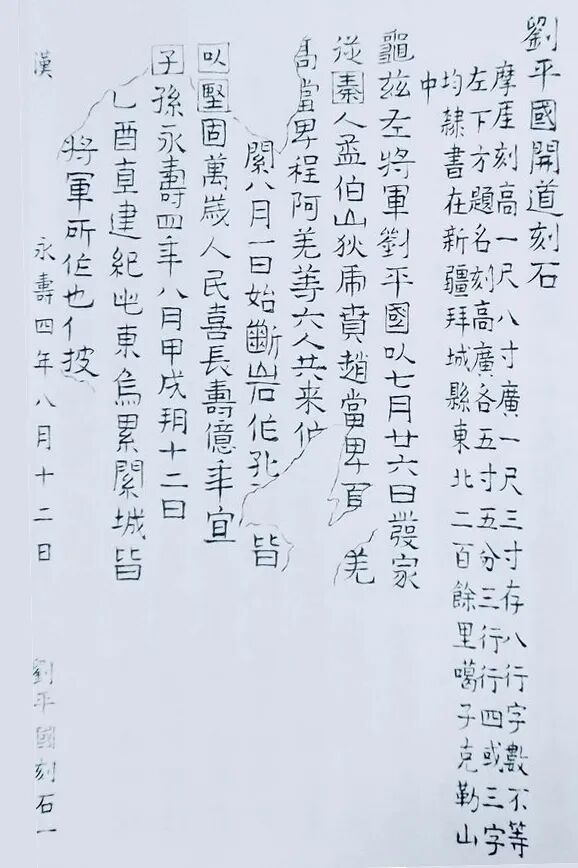 劉平國開道刻石
摩崖刻高一尺八寸廣一尺三寸存八行字數不等
左下方題名刻高廣各五寸五分三行行四或三字
均隸書在新疆拜城縣東北二百餘里噶子克勒山
中
龜茲左將軍劉平國以七月廿六日發家
從秦人孟伯山狄虎賁趙當卑 羌
當卑程阿羌等六人共来作
關八月一日始斷岩作孔 皆
以堅固萬歲人民喜長壽億年宜
子孫永壽四年八月甲戌朔十二日
乙酉直建紀此東烏累關城皆
將軍所作也亻披
漢 永壽四年八月十二日 劉平國刻石一